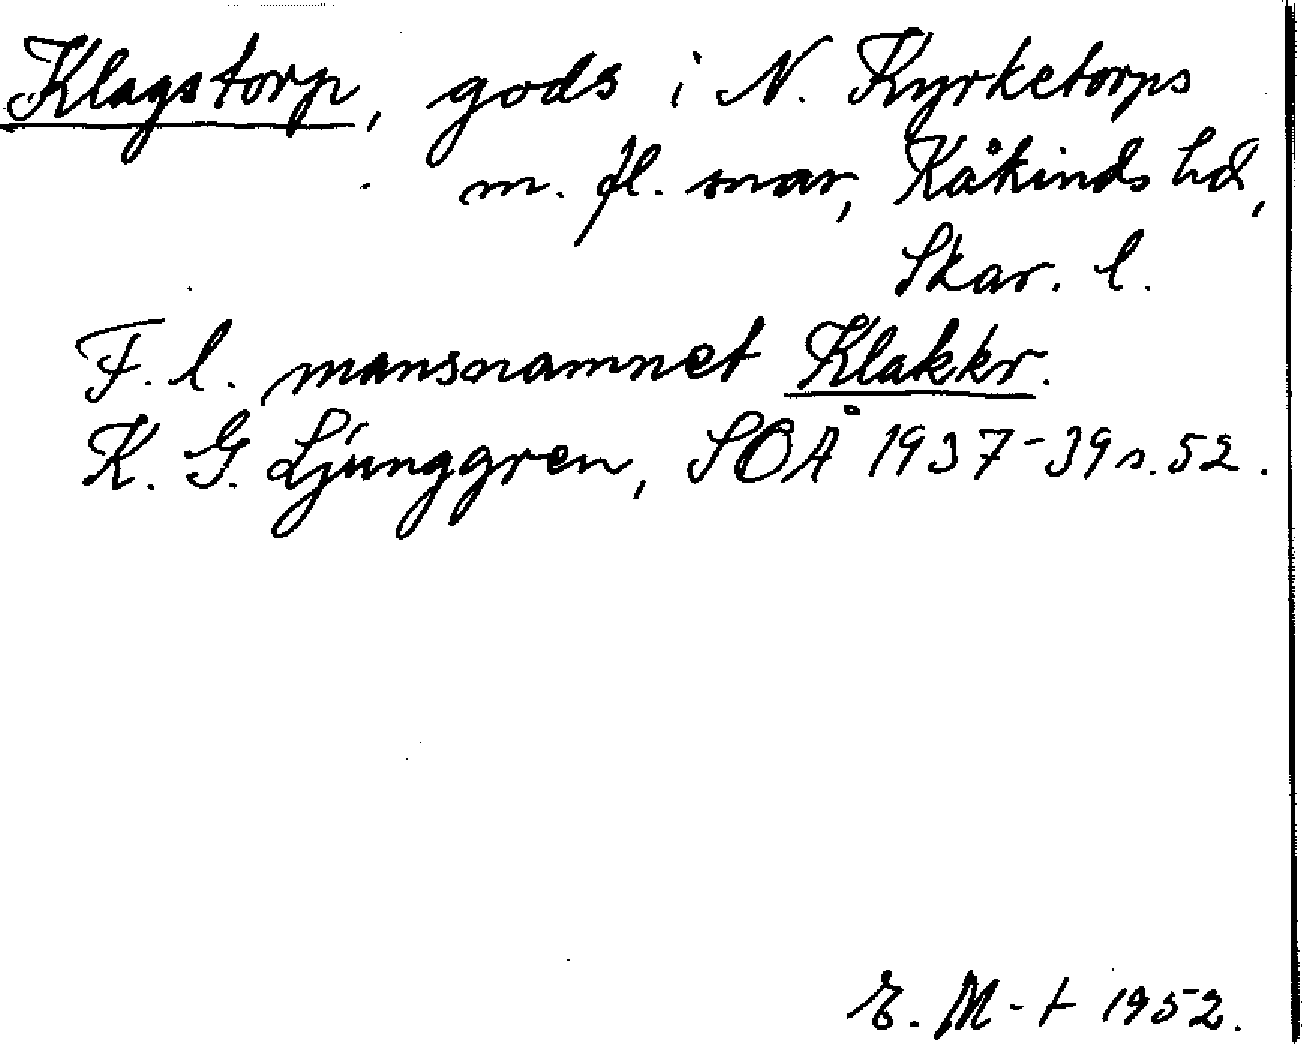 Klagstorp, gods i N. Kyrketorps
m. fl. snar, Kåkinds hd,
Skar. l.
F. l. mansnamnet Klakkr.
K. G. Ljunggren, SOÅ 1937-39 s. 52.
E. M-t 1952.